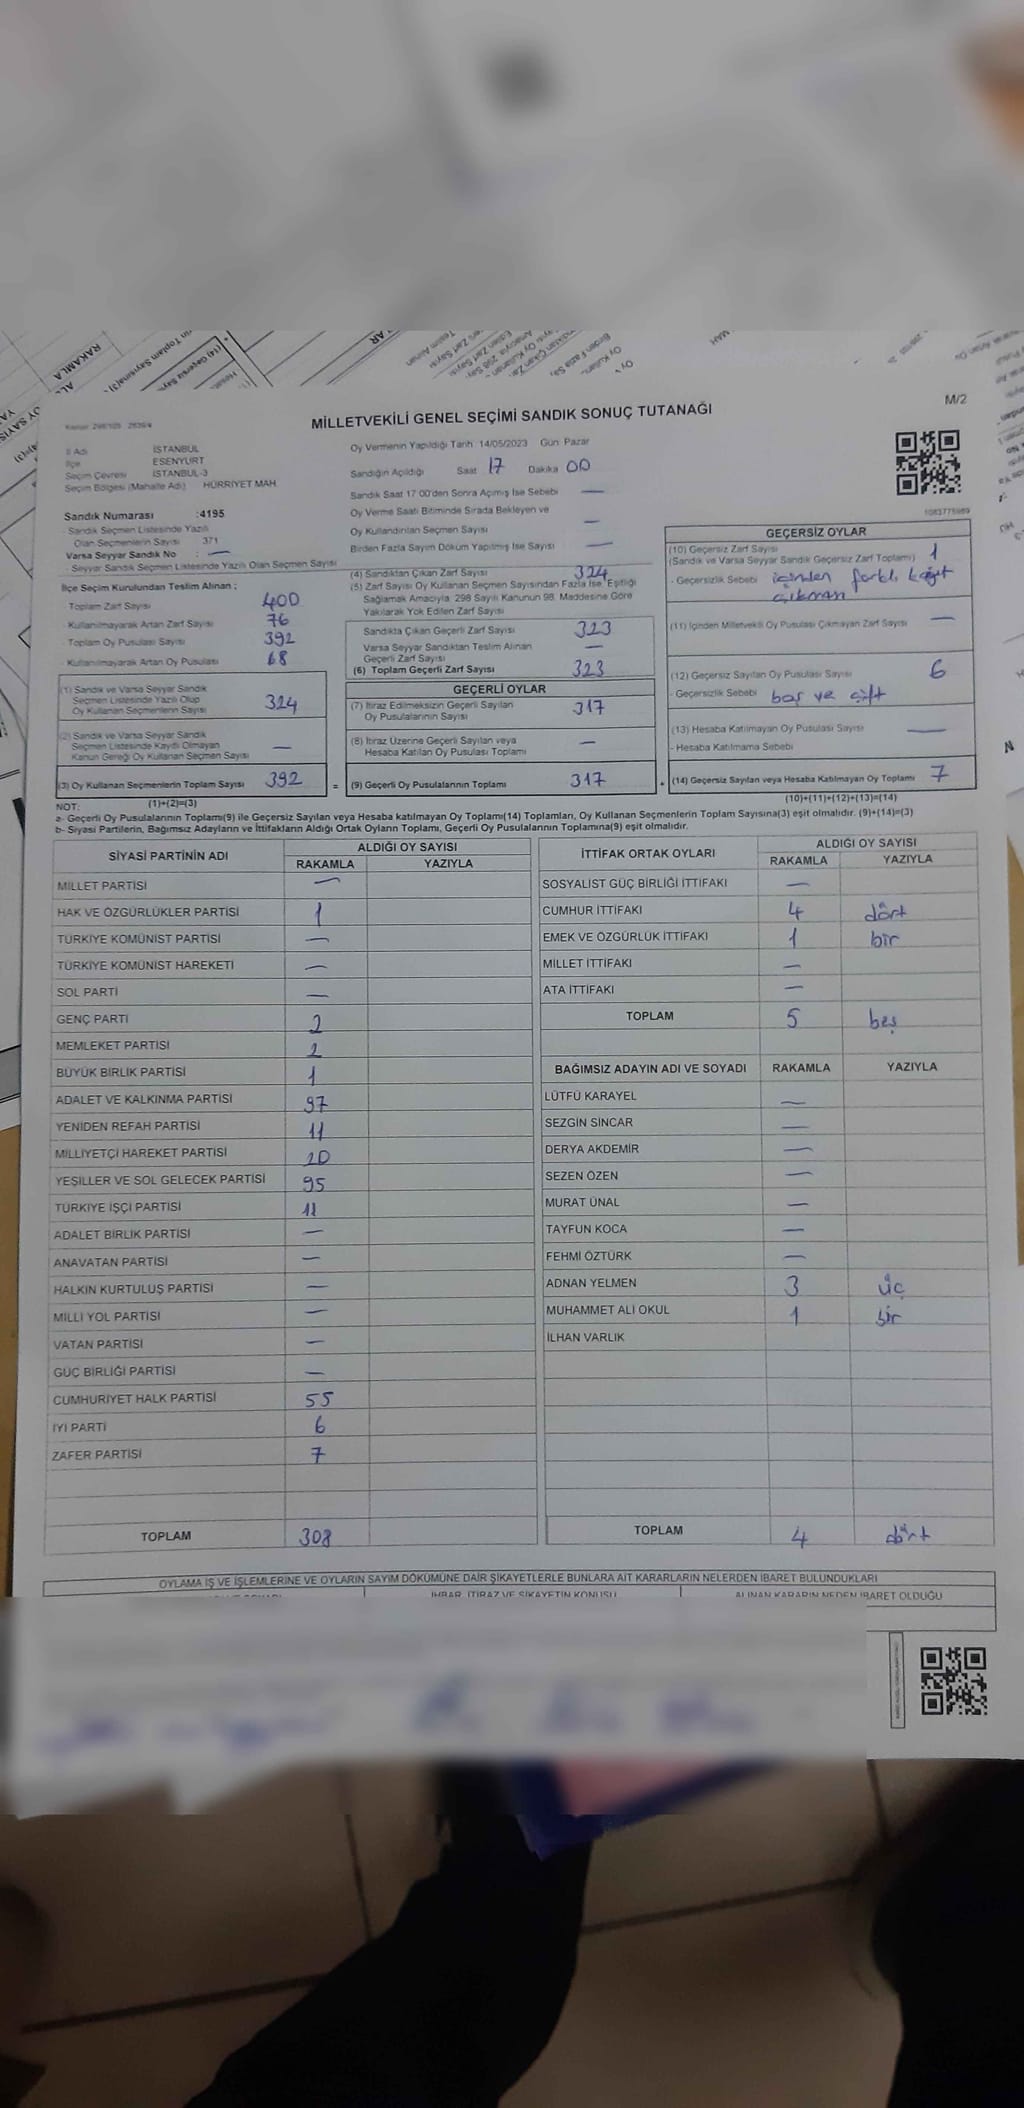 MİLLETVEKİLİ GENEL SEÇİMİ SANDIK SONUÇ TUTANAĞI
M/2
İl Adı İSTANBUL
İlçe ESENYURT
Seçim Çevresi İSTANBUL-3
Seçim Bölgesi (Mahalle Adı) HÜRRİYET MAH.
Sandık Numarası :4195
- Sandık Seçmen Listesinde Yazılı
Olan Seçmenlerin Sayısı 371
Varsa Seyyar Sandık No : —
- Seyyar Sandık Seçmen Listesinde Yazılı Olan Seçmen Sayısı
Oy Vermenin Yapıldığı Tarih 14/05/2023 Gün: Pazar
Sandığın Açıldığı Saat 17 Dakika 00
Sandık Saat 17:00'den Sonra Açılmış İse Sebebi —
Oy Verme Saati Bitiminde Sırada Bekleyen ve
Oy Kullandırılan Seçmen Sayısı —
Birden Fazla Sayım Döküm Yapılmış İse Sayısı —
1083775989
İlçe Seçim Kurulundan Teslim Alınan ;
- Toplam Zarf Sayısı 400
- Kullanılmayarak Artan Zarf Sayısı 76
- Toplam Oy Pusulası Sayısı 392
- Kullanılmayarak Artan Oy Pusulası 68
(1) Sandık ve Varsa Seyyar Sandık
Seçmen Listesinde Yazılı Olup
Oy Kullanan Seçmenlerin Sayısı 324
(2) Sandık ve Varsa Seyyar Sandık
Seçmen Listesinde Kaydı Olmayan
Kanun Gereği Oy Kullanan Seçmen Sayısı —
(3) Oy Kullanan Seçmenlerin Toplam Sayısı 392
(4) Sandıktan Çıkan Zarf Sayısı 324
(5) Zarf Sayısı Oy Kullanan Seçmen Sayısından Fazla İse, Eşitliği
Sağlamak Amacıyla, 298 Sayılı Kanunun 98. Maddesine Göre
Yakılarak Yok Edilen Zarf Sayısı
Sandıkta Çıkan Geçerli Zarf Sayısı 323
Varsa Seyyar Sandıktan Teslim Alınan
Geçerli Zarf Sayısı —
(6) Toplam Geçerli Zarf Sayısı 323
GEÇERLİ OYLAR
(7) İtiraz Edilmeksizin Geçerli Sayılan
Oy Pusulalarının Sayısı 317
(8) İtiraz Üzerine Geçerli Sayılan veya
Hesaba Katılan Oy Pusulası Toplamı —
= (9) Geçerli Oy Pusulalarının Toplamı 317
GEÇERSİZ OYLAR
(10) Geçersiz Zarf Sayısı
(Sandık ve Varsa Seyyar Sandık Geçersiz Zarf Toplamı) 1
- Geçersizlik Sebebi içinden farklı kağıt
çıkması
(11) İçinden Milletvekili Oy Pusulası Çıkmayan Zarf Sayısı —
(12) Geçersiz Sayılan Oy Pusulası Sayısı 6
- Geçersizlik Sebebi boş ve çift
(13) Hesaba Katılmayan Oy Pusulası Sayısı —
- Hesaba Katılmama Sebebi
+ (14) Geçersiz Sayılan veya Hesaba Katılmayan Oy Toplamı 7
NOT: (1)+(2)=(3)
(10)+(11)+(12)+(13)=(14)
a- Geçerli Oy Pusulalarının Toplamı(9) ile Geçersiz Sayılan veya Hesaba katılmayan Oy Toplamı(14) Toplamları, Oy Kullanan Seçmenlerin Toplam Sayısına(3) eşit olmalıdır. (9)+(14)=(3)
b- Siyasi Partilerin, Bağımsız Adayların ve İttifakların Aldığı Ortak Oyların Toplamı, Geçerli Oy Pusulalarının Toplamına(9) eşit olmalıdır.
SİYASİ PARTİNİN ADI ALDIĞI OY SAYISI
RAKAMLA YAZIYLA
MİLLET PARTİSİ —
HAK VE ÖZGÜRLÜKLER PARTİSİ 1
TÜRKİYE KOMÜNİST PARTİSİ —
TÜRKİYE KOMÜNİST HAREKETİ —
SOL PARTİ —
GENÇ PARTİ 2
MEMLEKET PARTİSİ 2
BÜYÜK BİRLİK PARTİSİ 1
ADALET VE KALKINMA PARTİSİ 97
YENİDEN REFAH PARTİSİ 11
MİLLİYETÇİ HAREKET PARTİSİ 20
YEŞİLLER VE SOL GELECEK PARTİSİ 95
TÜRKİYE İŞÇİ PARTİSİ 11
ADALET BİRLİK PARTİSİ —
ANAVATAN PARTİSİ —
HALKIN KURTULUŞ PARTİSİ —
MİLLİ YOL PARTİSİ —
VATAN PARTİSİ —
GÜÇ BİRLİĞİ PARTİSİ —
CUMHURİYET HALK PARTİSİ 55
İYİ PARTİ 6
ZAFER PARTİSİ 7
TOPLAM 308
İTTİFAK ORTAK OYLARI ALDIĞI OY SAYISI
RAKAMLA YAZIYLA
SOSYALİST GÜÇ BİRLİĞİ İTTİFAKI —
CUMHUR İTTİFAKI 4 dört
EMEK VE ÖZGÜRLÜK İTTİFAKI 1 bir
MİLLET İTTİFAKI —
ATA İTTİFAKI —
TOPLAM 5 beş
BAĞIMSIZ ADAYIN ADI VE SOYADI RAKAMLA YAZIYLA
LÜTFÜ KARAYEL —
SEZGİN SİNCAR —
DERYA AKDEMİR —
SEZEN ÖZEN —
MURAT ÜNAL —
TAYFUN KOCA —
FEHMİ ÖZTÜRK —
ADNAN YELMEN 3 üç
MUHAMMET ALİ OKUL 1 bir
İLHAN VARLIK
TOPLAM 4 dört
OYLAMA İŞ VE İŞLEMLERİNE VE OYLARIN SAYIM DÖKÜMÜNE DAİR ŞİKAYETLERLE BUNLARA AİT KARARLARIN NELERDEN İBARET BULUNDUKLARI
İHBAR, İTİRAZ VE ŞİKAYETİN KONUSU
ALINAN KARARIN NEDEN İBARET OLDUĞU